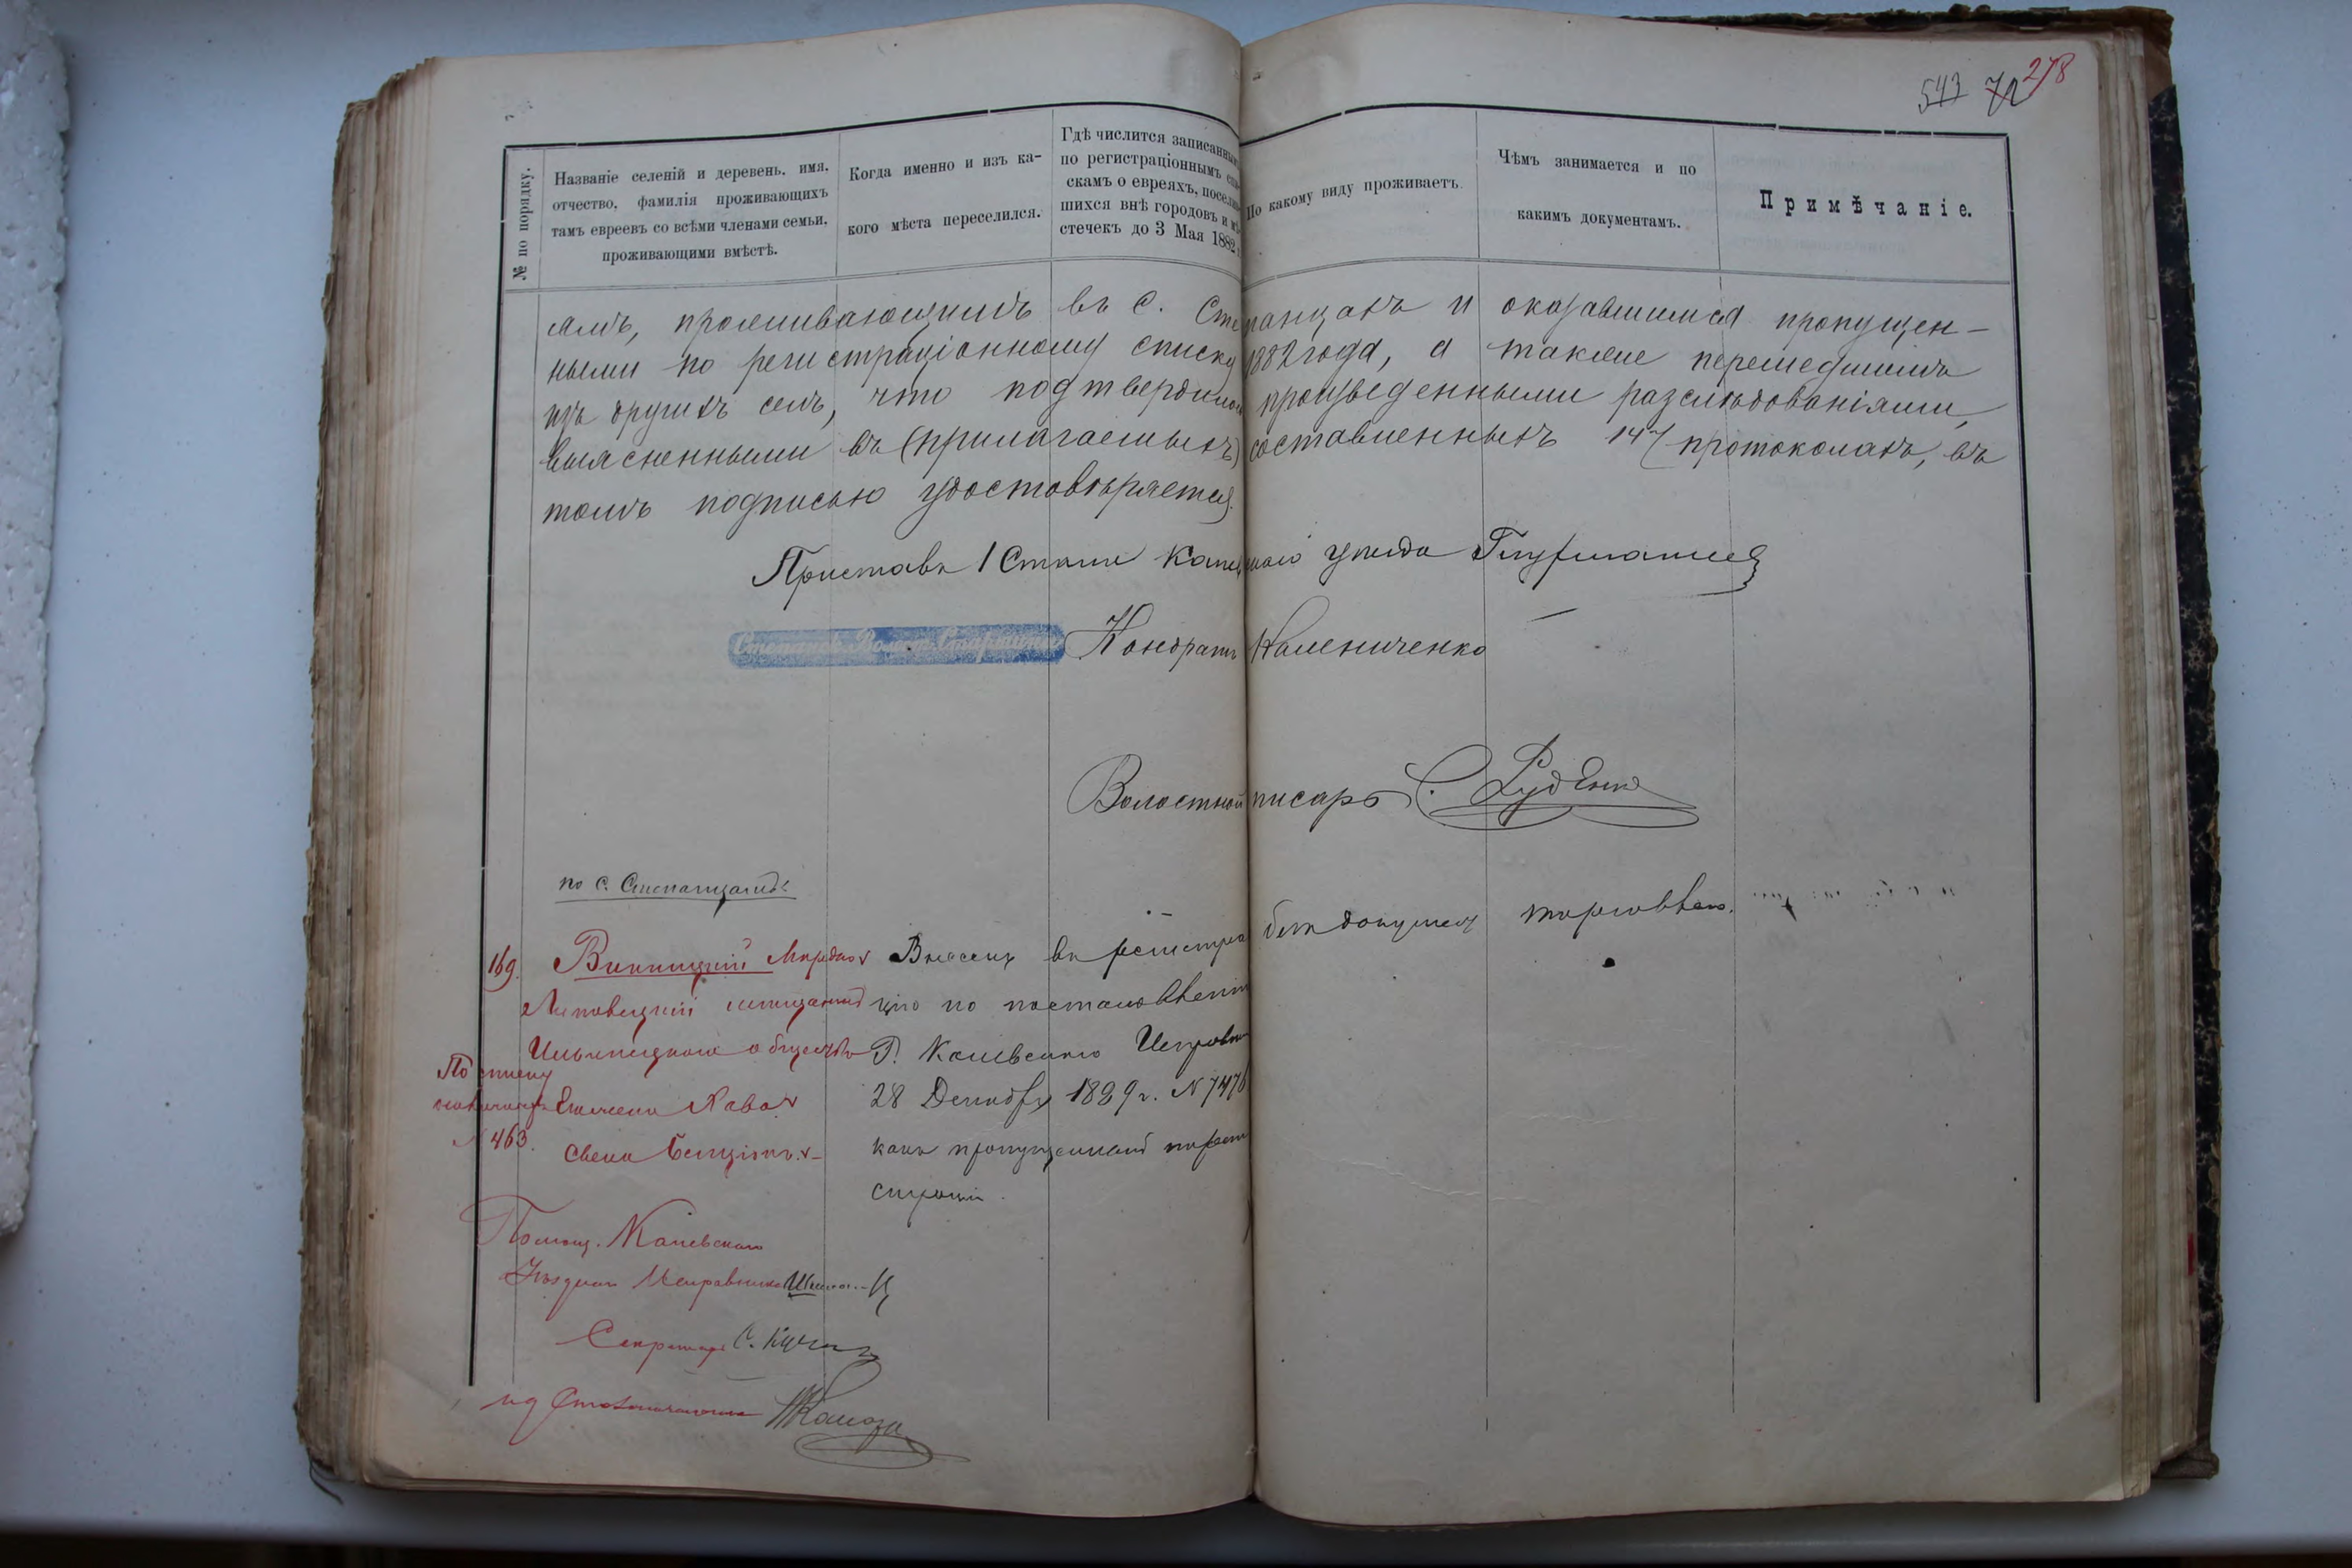 543 72 278
№ по порядку.
Названіе селеній и деревень, имя,
отчество, фамилія проживающихъ
тамъ евреевъ со всѣми членами семьи,
проживающими вмѣстѣ.
Когда именно и изъ ка-
кого мѣста переселился.
Гдѣ числится записаннымъ
по регистраціоннымъ спи-
скамъ о евреяхъ, поселив-
шихся внѣ городовъ и мѣ-
стечекъ до 3 Мая 1882 г.
По какому виду проживаетъ.
Чѣмъ занимается и по
какимъ документамъ.
Примѣчаніе.
ямъ, проживающимъ въ с. Степанцахъ и оказавшимся пропущен-
ными по регистраціонному списку 1882 года, а также перешедшимъ
изъ другихъ селъ, что подтвердилось произведенными разслѣдованіями,
выясненными въ (прилагаемыхъ) составленныхъ 147 протоколахъ, въ
томъ подписью удостовѣряется.
Приставъ 1 Стана Каневскаго уѣзда
Степанск. Волост. Старшина Кондратъ Калениченко
Волостной писарь С. Руденко
по с. Степанцамъ:
169. Винницкій Мордко Внесенъ въ регистра без докумен торговлею.
Липовецкій мѣщанинъ цію по постановленію
Ильинецкаго общества Г. Каневскаго Исправн
По списку
28 Декабря 1889 г. N 7476
N 463.
какъ пропущенный по реги
страціи.
Помощ. Каневскаго
Уѣзднаго Исправника
Секретарь С.